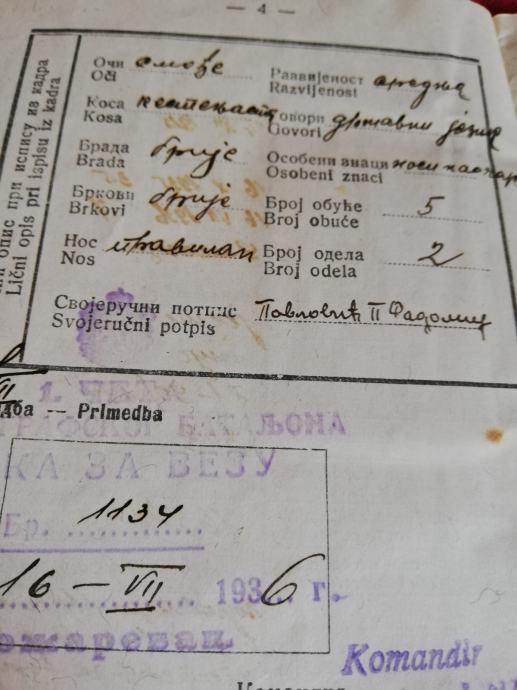 — 4 —
опис при испису из кадра
Lični opis pri ispisu iz kadra
Очи смеђе
Oči
Развијеност средња
Razvljenost
Коса кестењаста
Kosa
Говори државни језик
Govori
Брада брије
Brada
Особени знаци носи
Osobeni znaci
Бркови брије
Brkovi
Број обуће 5
Broj obuće
Нос правилан
Nos
Број одела 2
Broj odela
Својеручни потпис Павловић П Радомир
Svojeručni potpis
дба — Primedba
1. ЧЕТА
ГРАФСКОГ БАТАЉОНА
КА ЗА ВЕЗУ
Бр. 1134
16 — VII 1936 г.
ожаревац
Komandir